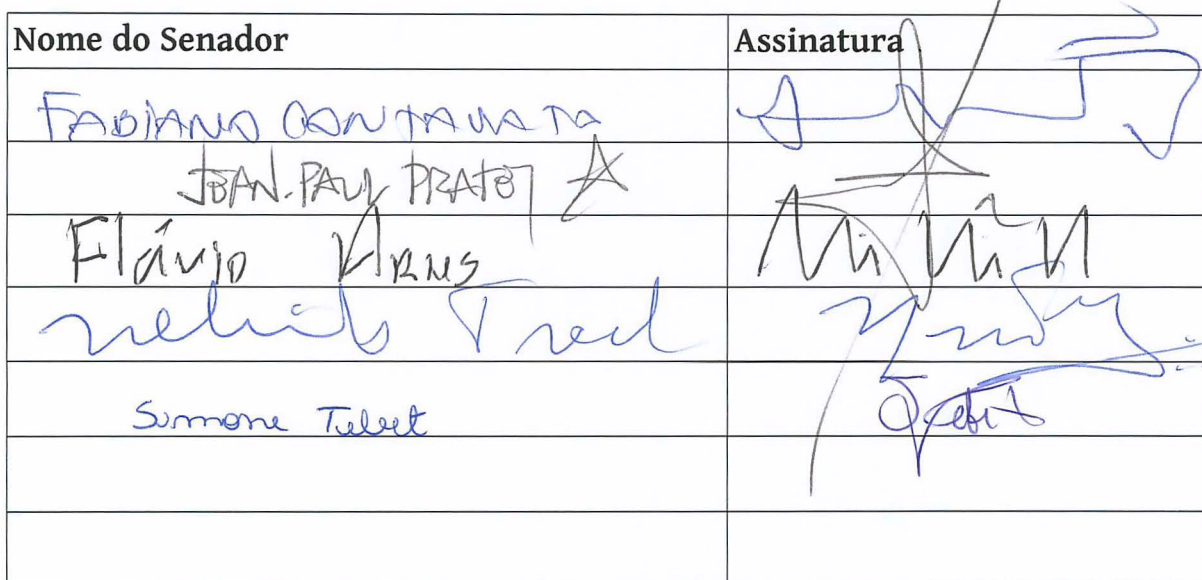 Nome do Senador Assinatura
FABIANO CONTARATO
JEAN-PAUL PRATES
Flávio Arns
Nelsinho Trad
Simone Tebet